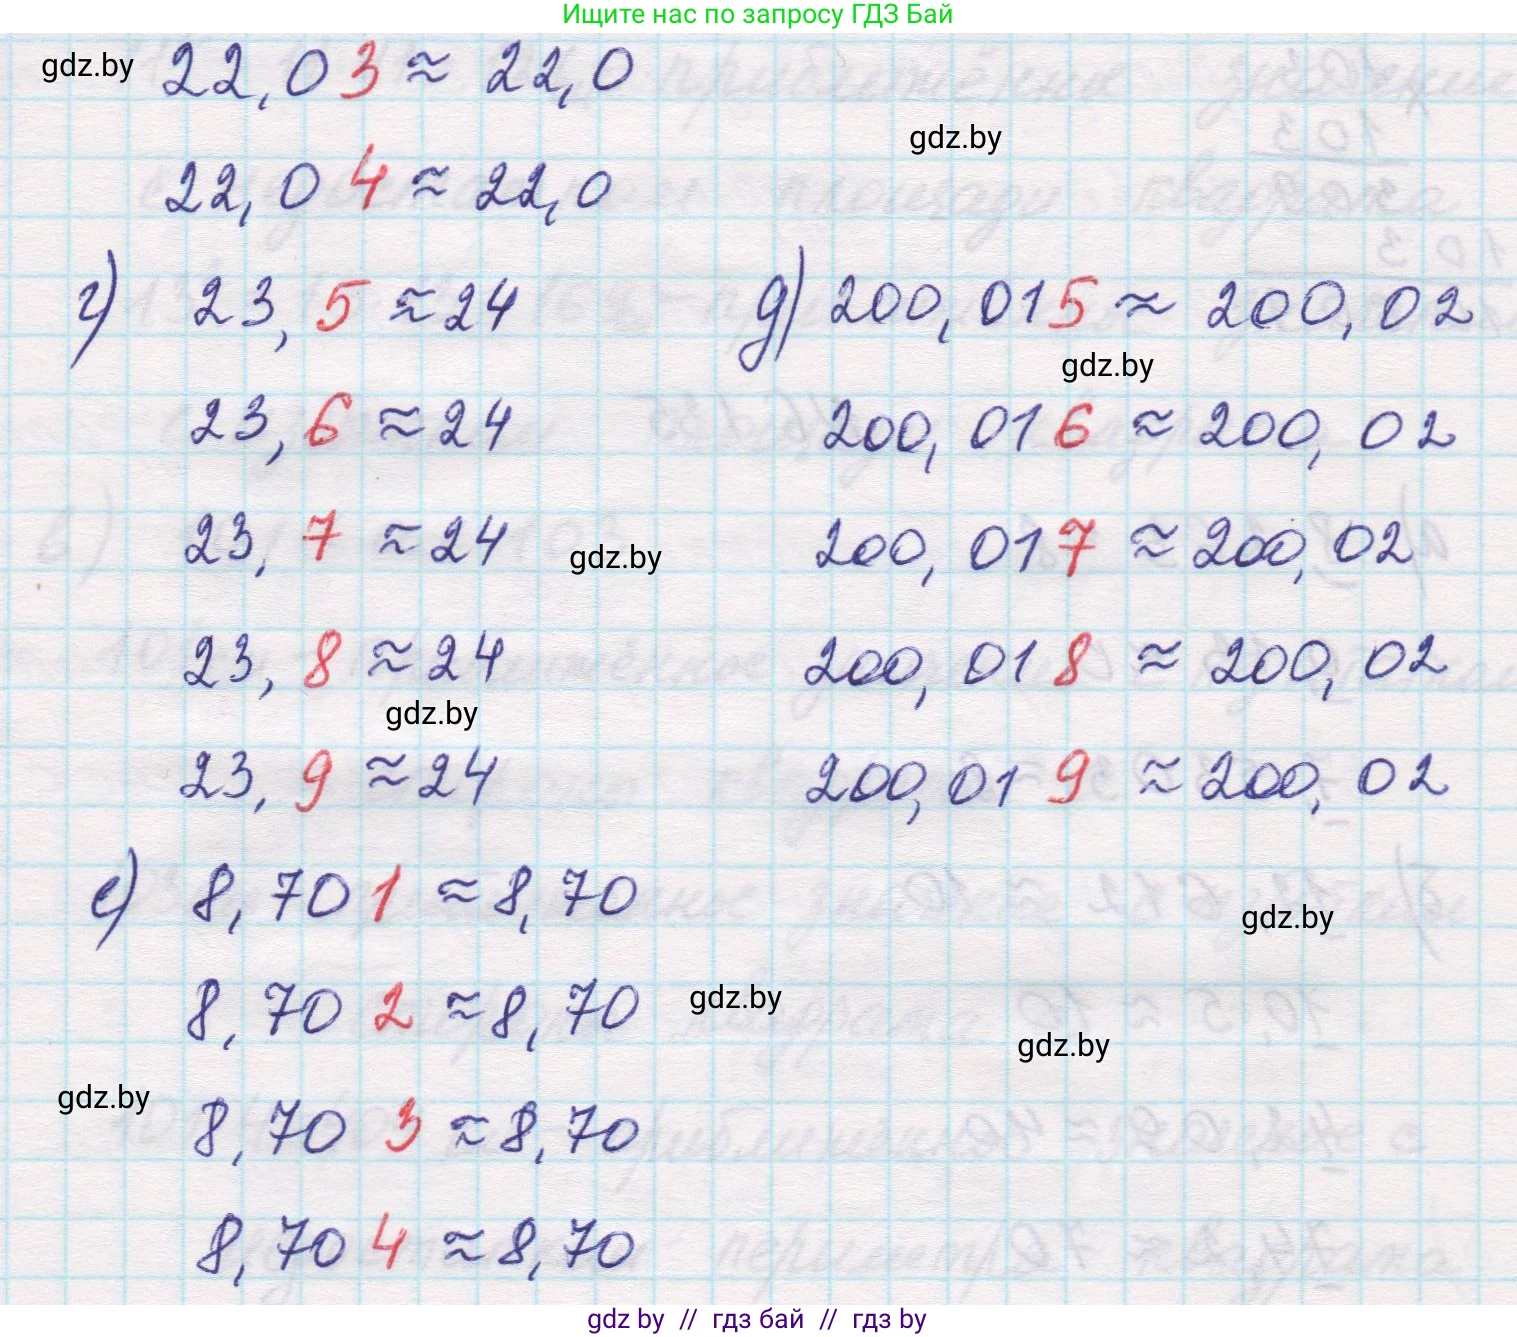 Ищите нас по запросу ГДЗ Бай
gdz.by
22,03 ≈ 22,0
gdz.by
22,04 ≈ 22,0
г) 23,5 ≈ 24
23,6 ≈ 24
23,7 ≈ 24
gdz.by
23,8 ≈ 24
gdz.by
23,9 ≈ 24
д) 200,015 ≈ 200,02
gdz.by
200,016 ≈ 200,02
200,017 ≈ 200,02
200,018 ≈ 200,02
200,019 ≈ 200,02
е) 8,701 ≈ 8,70
gdz.by
8,702 ≈ 8,70
gdz.by
gdz.by
gdz.by
8,703 ≈ 8,70
8,704 ≈ 8,70
gdz by // гдз бай // гдз by